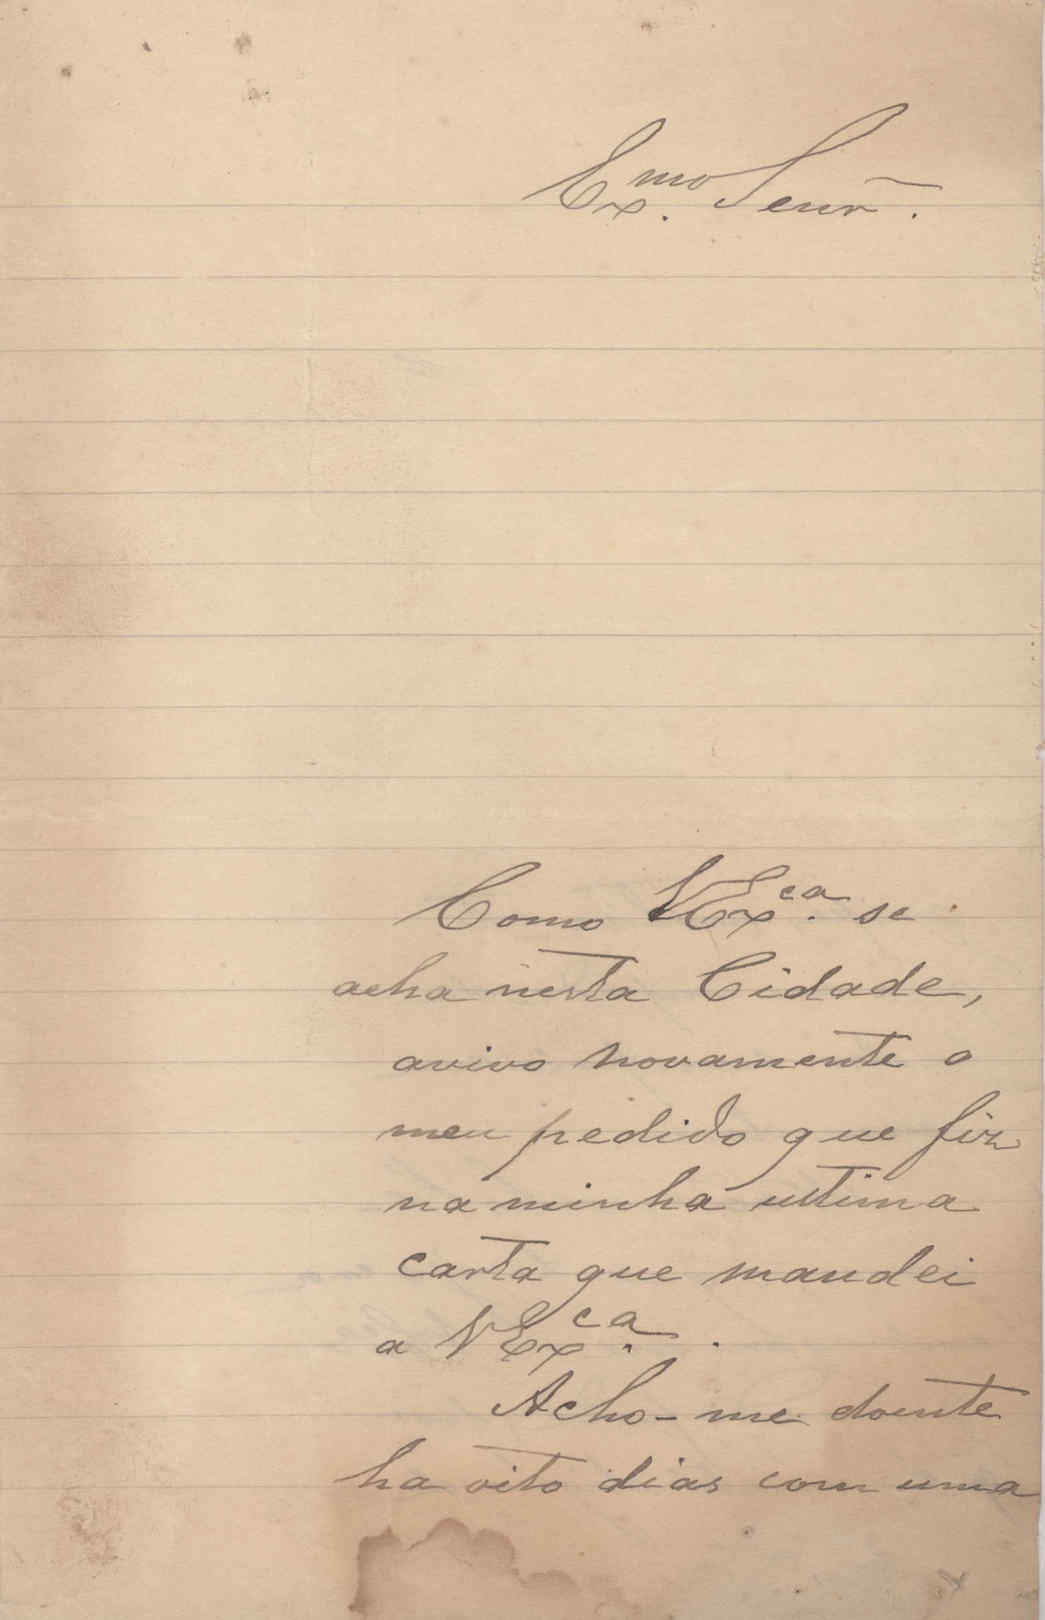 Ex.mo Senr.
Como VEx.ca se
acha nesta Cidade,
avivo novamente o
meu pedido que fiz
na minha ultima
carta que mandei
a VEx.ca.
Acho-me doente
ha oito dias com uma